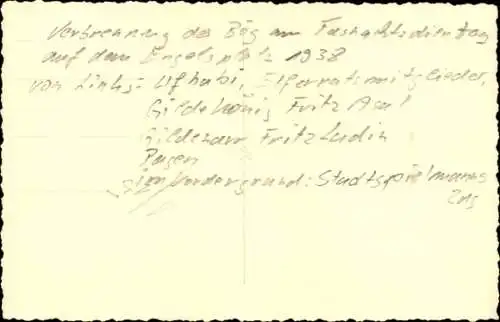 Verbrennung des Bög am Fasnachtsdienstag
auf dem Engelsplatz 1938
von Links: Ufhabi, Elferratsmitglieder,
Gildekönig Fritz Asal
Gildenarr Fritz Ludin
Pagen
im Vordergrund: Stadtspielmanns
zug